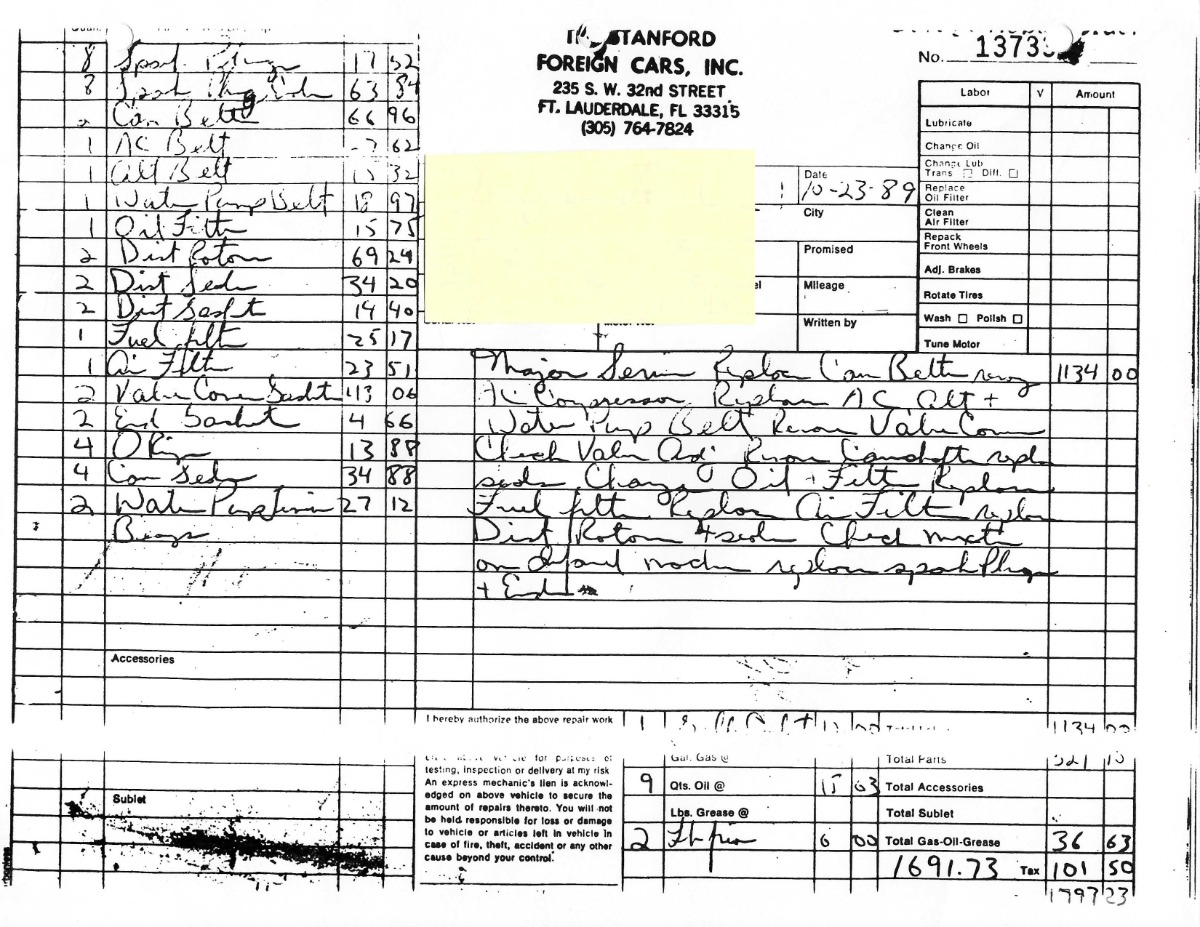 STANFORD
FOREIGN CARS, INC.
235 S. W. 32nd STREET
FT. LAUDERDALE, FL 33315
(305) 764-7824
No. 1373
8 17 52
8 63 84
2 Cam Belts 66 96
1 AC Belt 62
1 Alt Belt 32
1 Water Pump Belt 18 97
1 Oil Filter 15 75
2 Dist Rotors 69 24
2 Dist Seals 34 20
2 Dist Gaskt 14 40
1 Fuel filt 25 17
1 Air Filter 23 51
2 Valve Cover Gaskt 113 06
2 End Gasket 4 66
4 O Rings 13 88
4 Cam Seals 34 88
2 Water Pump 27 12
Accessories
Sublet
Date 10-23-89
City
Promised
Mileage
Written by
Labor V Amount
Lubricate
Change Oil
Change Lub
Trans Diff.
Replace
Oil Filter
Clean
Air Filter
Repack
Front Wheels
Adj. Brakes
Rotate Tires
Wash Polish
Tune Motor
Major Service Replace Cam Belts 1134 00
Compressor Replace AC Alt +
Water Pump Belt Remove Valve Covers
Check Valve Adj Remove Camshafts
seals Change Oil + Filter Replace
Fuel filter Replace Air Filter
Dist Rotors + seals Check
replace spark Plugs
+ Ends
I hereby authorize the above repair work
1134 00
testing, inspection or delivery at my risk
An express mechanic's lien is acknowl-
edged on above vehicle to secure the
amount of repairs thereto. You will not
be held responsible for loss or damage
to vehicle or articles left in vehicle in
case of fire, theft, accident or any other
cause beyond your control.
Gal. Gas @
9 Qts. Oil @ 63
Lbs. Grease @
2 6 00
Total Parts
Total Accessories
Total Sublet
Total Gas-Oil-Grease 36 63
1691.73 Tax 101 50
1797 23